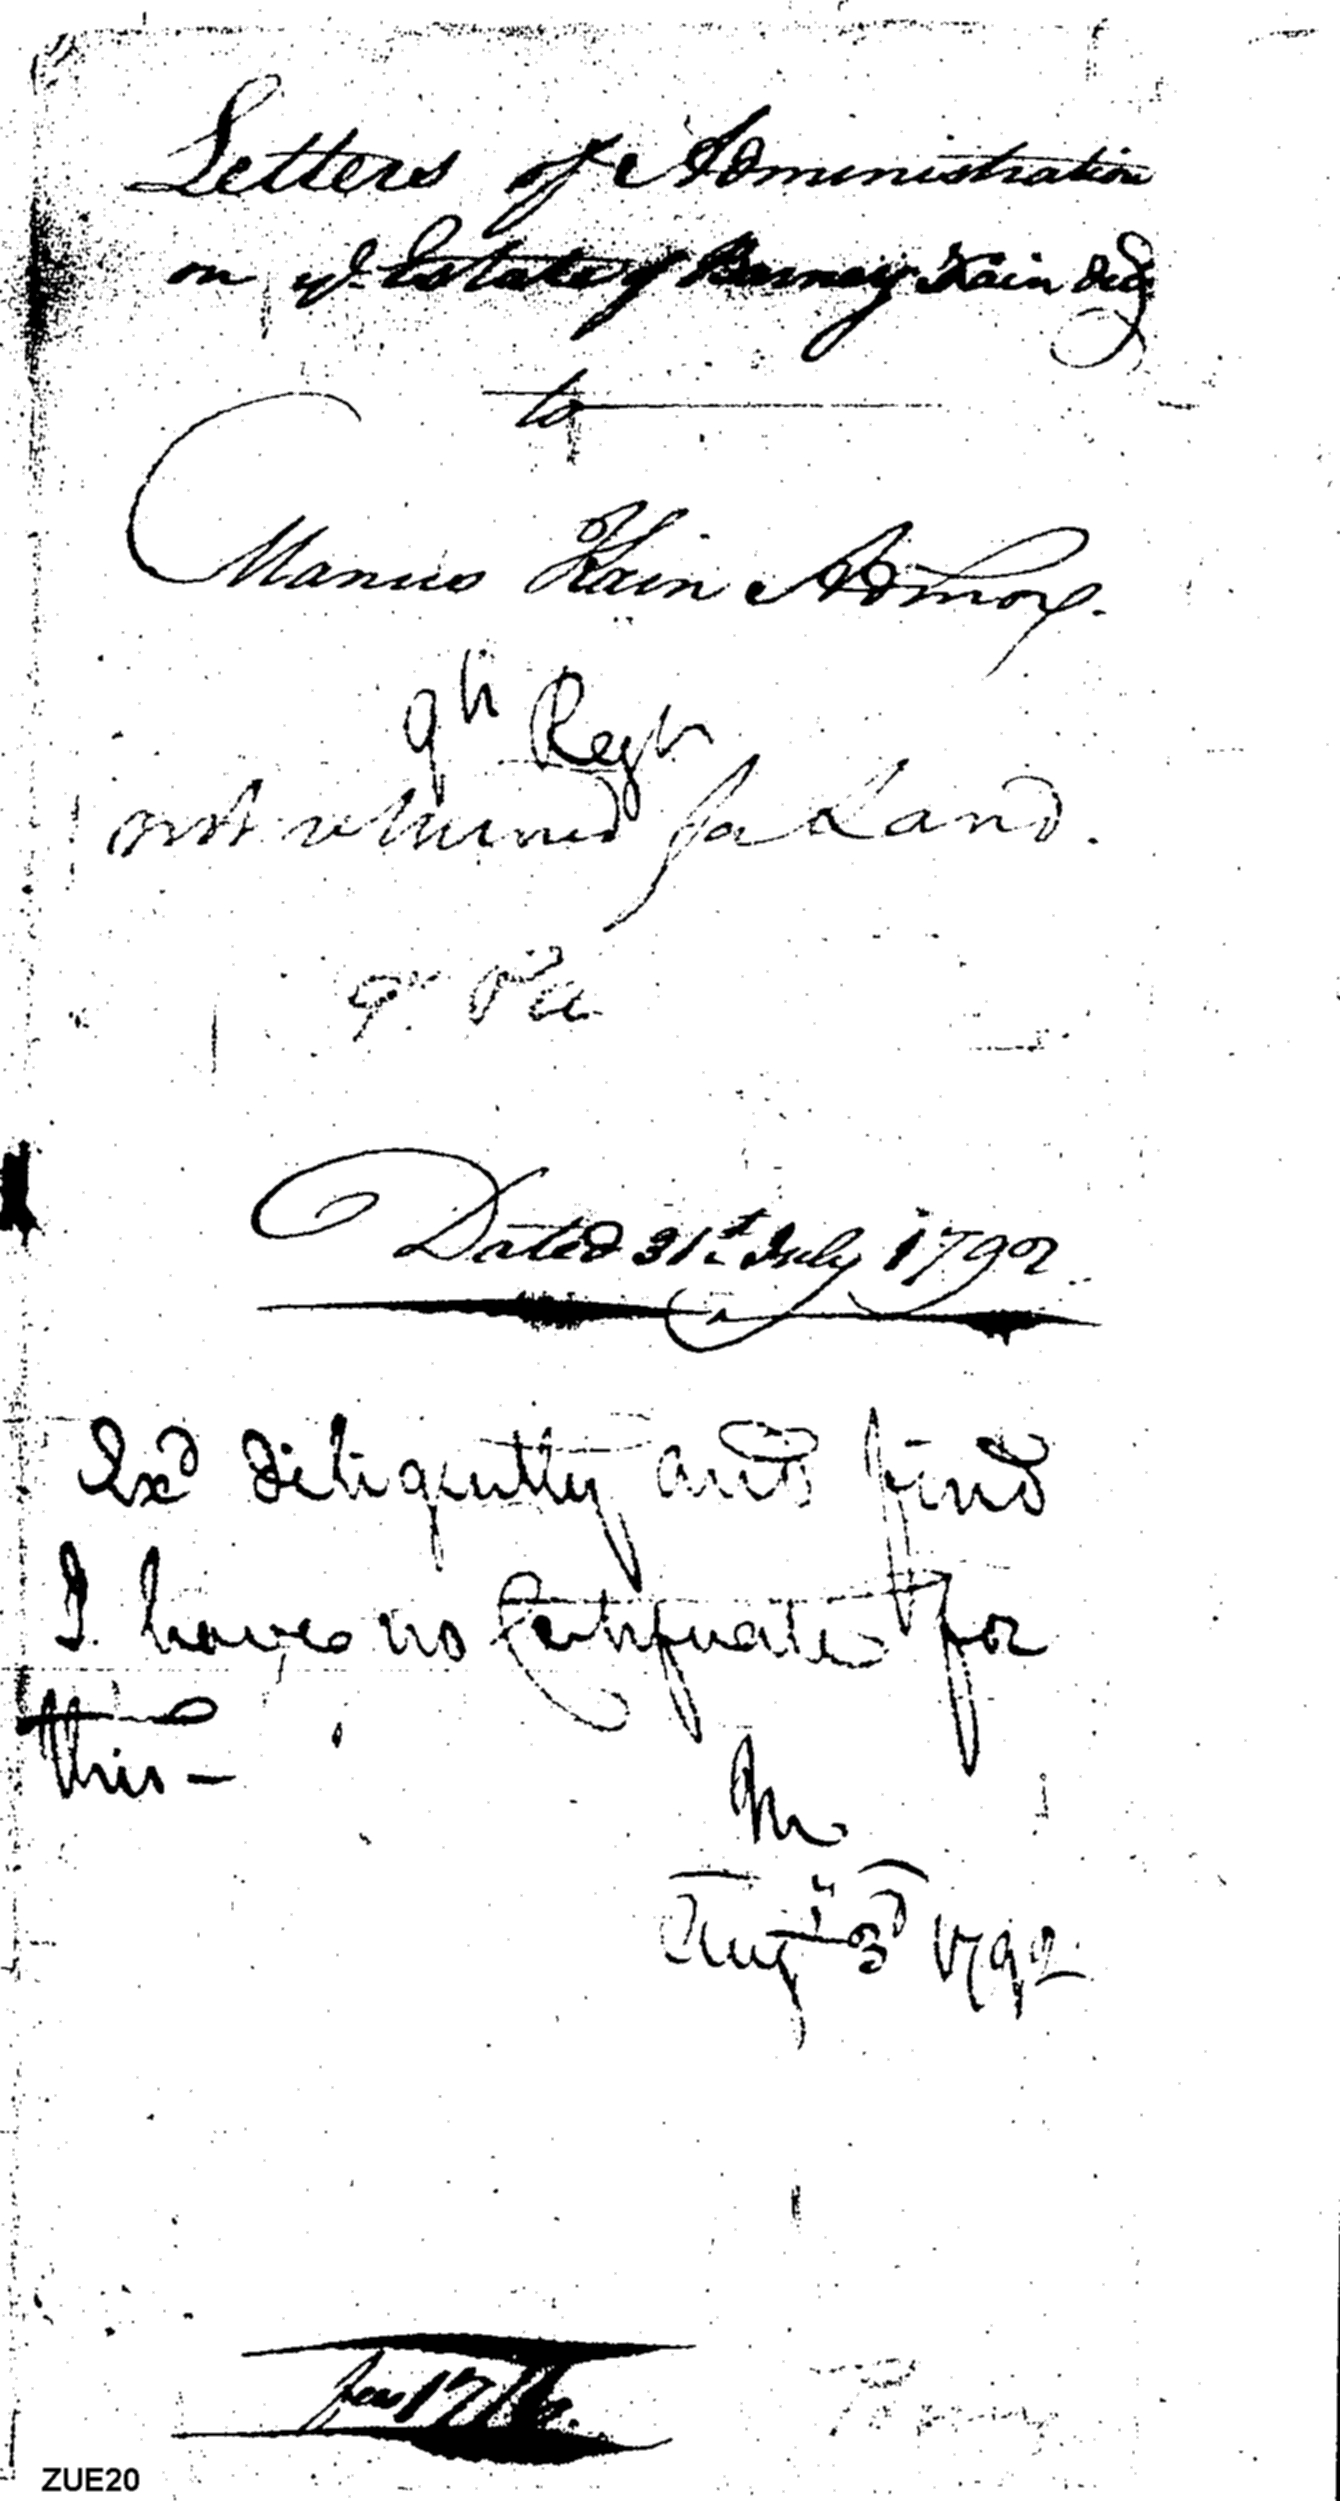 Letters of Administration
on ye Estate of Barney Kain decd
to
Manus Kain Admor.
9th Regt
not returned for Land.
9th Pa
Dated 31st July 1792
Exd diligently and find
I have no Certificate for
this –
M
Augt 3d 1792
fees 17/6.
ZUE20